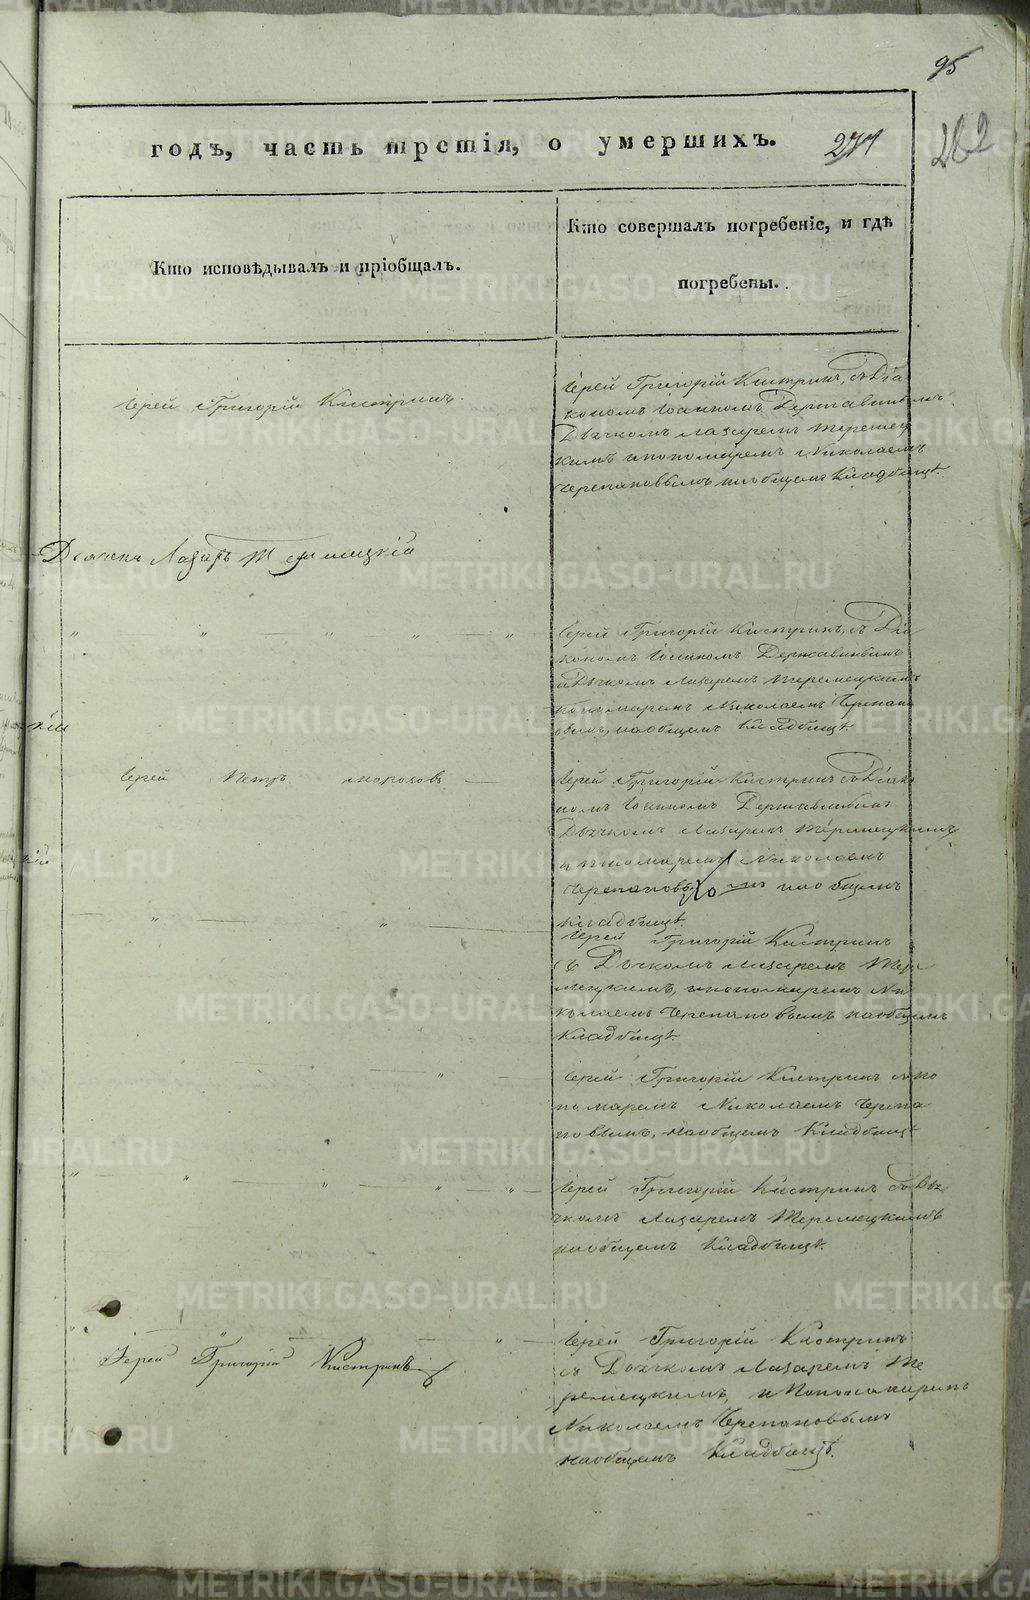 95
годъ, часть третія, о умершихъ. 271
282
Кто исповѣдывалъ и пріобщалъ.
Кто совершалъ погребеніе, и гдѣ
погребены.
Іерей Григорій Кистринъ.
Іерей Григорій Кистринъ, съ Діа
кономъ Іоанномъ Державинымъ
Дьячкомъ Лазаремъ Теремец
кимъ и пономаремъ Николаемъ
Черепановымъ на общемъ Кладбищѣ.
Дьячекъ Лазарь Теремецкій
" " " "
Іерей Григорій Кистринъ, съ Діа
кономъ Іоанномъ Державинымъ
и Дьячкомъ Лазаремъ Теремецкимъ
Николаемъ Черепано
вымъ, на общемъ Кладбищѣ.
кій
Іерей Петръ Морозовъ
Іерей Григорій Кистринъ съ Діако
номъ Іоанномъ Державинымъ
Дьячкомъ Лазаремъ Теремецкимъ
и пономаремъ Николаемъ
Черепановымъ на общемъ
кладбищѣ.
кій
" "
Іерей Григорій Кистринъ
съ Дьячкомъ Лазаремъ Тере
мецкимъ, и пономаремъ Ни
колаемъ Черепановымъ на общемъ
Кладбищѣ.
"
Іерей Григорій Кистринъ съ по
номаремъ Николаемъ Черепа
новымъ, на общемъ Кладбищѣ
" " " " "
Іерей Григорій Кистринъ съ Дья
чкомъ Лазаремъ Теремецкимъ
на общемъ Кладбищѣ.
" " "
Іерей Григорій Кистринъ
Іерей Григорій Кистринъ
съ Дьячкомъ Лазаремъ Те
ремецкимъ, и Пономаремъ
Николаемъ Черепановымъ
на общемъ Кладбищѣ.
METRIKI.GASO-URAL.RU